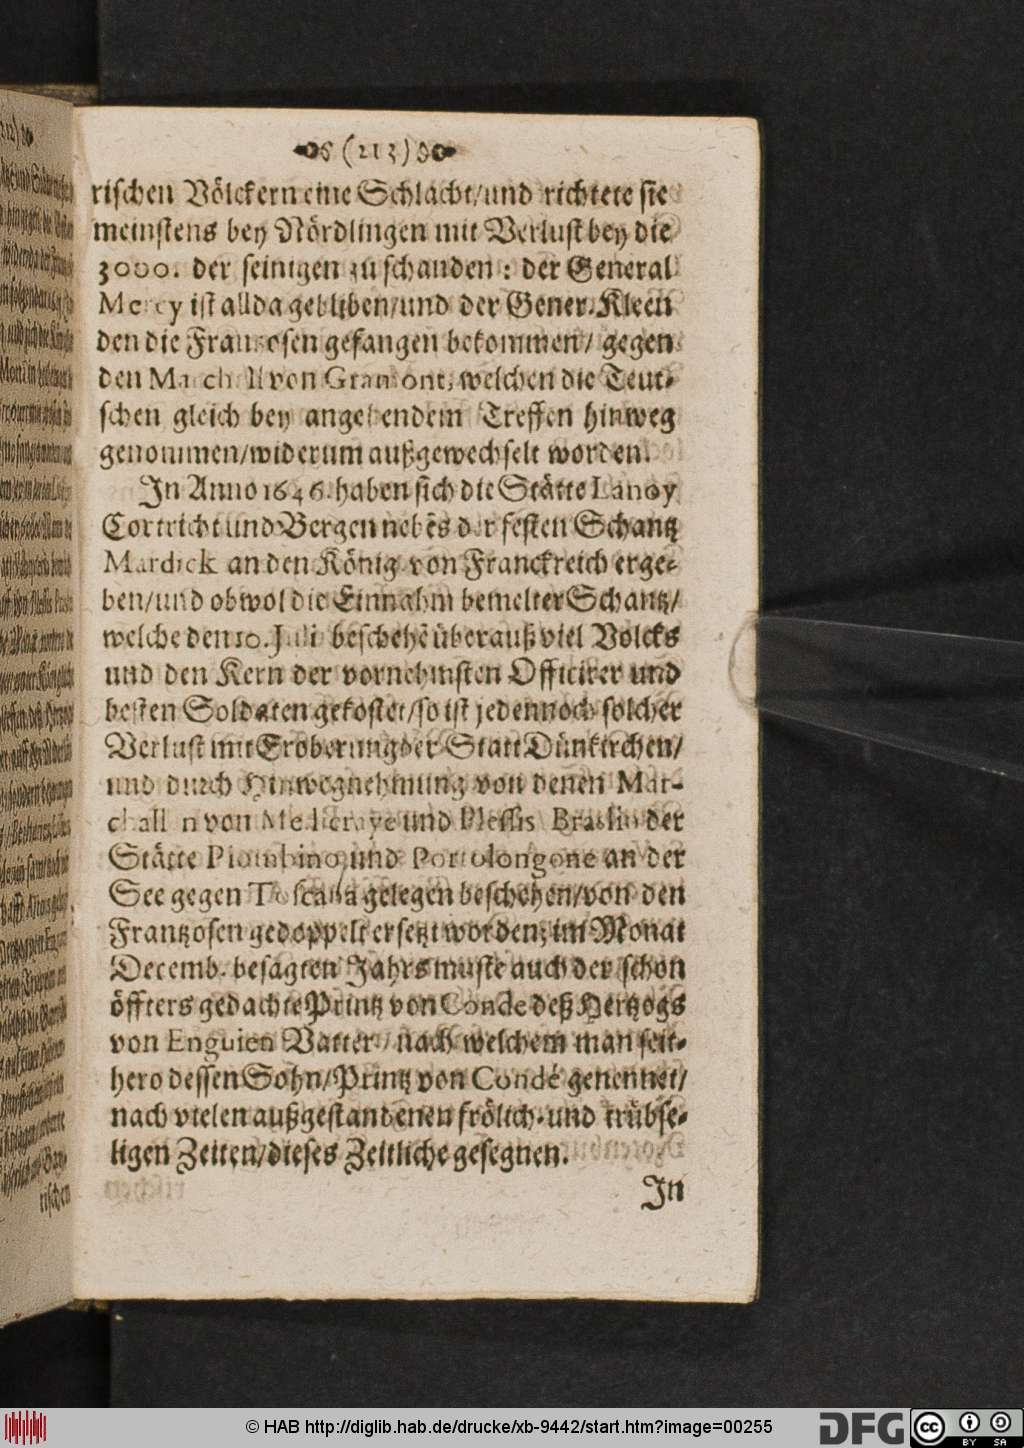 (213)
rischen Völckern eine Schlacht/und richtete sie
meinstens bey Nördlingen mit Verlust bey die
3000. der seinigen zu schanden: der General
Mercy ist allda gebliben/und der Gener. Kleen
den die Frantzosen gefangen bekommen/ gegen
den Marchall von Gramont, welchen die Teut-
schen gleich bey angehendem Treffen hinweg
genommen/widerum außgewechselt worden.
In Anno 1646. haben sich die Stätte Lanoy
Cortricht und Bergen nebẽs der festen Schantz
Mardick an den König von Franckreich erge-
ben/und obwol die Einnahm bemelter Schantz/
welche den 10. Juli beschehẽ überauß viel Volcks
und den Kern der vornehmsten Officirer und
besten Soldaten gekostet/so ist jedennoch solcher
Verlust mit Eroberung der Statt Dünkirchen/
und durch Hinwegnehmung von denen Mar-
challn von Melleraye und Plessis Braslin der
Stätte Piombino und Portolongone an der
See gegen Toscana gelegen beschehen/von den
Frantzosen gedoppelt ersetzt worden; im Monat
Decemb. besagten Jahrs muste auch der schon
öffters gedachte Printz von Conde deß Hertzogs
von Enguien Vatter/ nach welchem man seit-
hero dessen Sohn/Printz von Condé genennet/
nach vielen außgestandenen frölich- und trübse-
ligen Zeiten/dieses Zeitliche gesegnen.
In
rischen
© HAB http://diglib.hab.de/drucke/xb-9442/start.htm?image=00255
DFG
cc BY SA